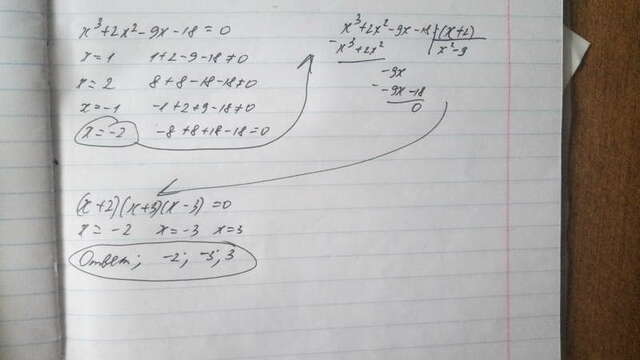 x³+2x²-9x-18=0
x=1 1+2-9-18≠0
x=2 8+8-18-18≠0
x=-1 -1+2+9-18≠0
x=-2 -8+8+18-18=0
x³+2x²-9x-18 (x+2)
-x³+2x² x²-9
-9x
-9x-18
0
(x+2)(x+3)(x-3)=0
x=-2 x=-3 x=3
Ответ; -2; -3; 3